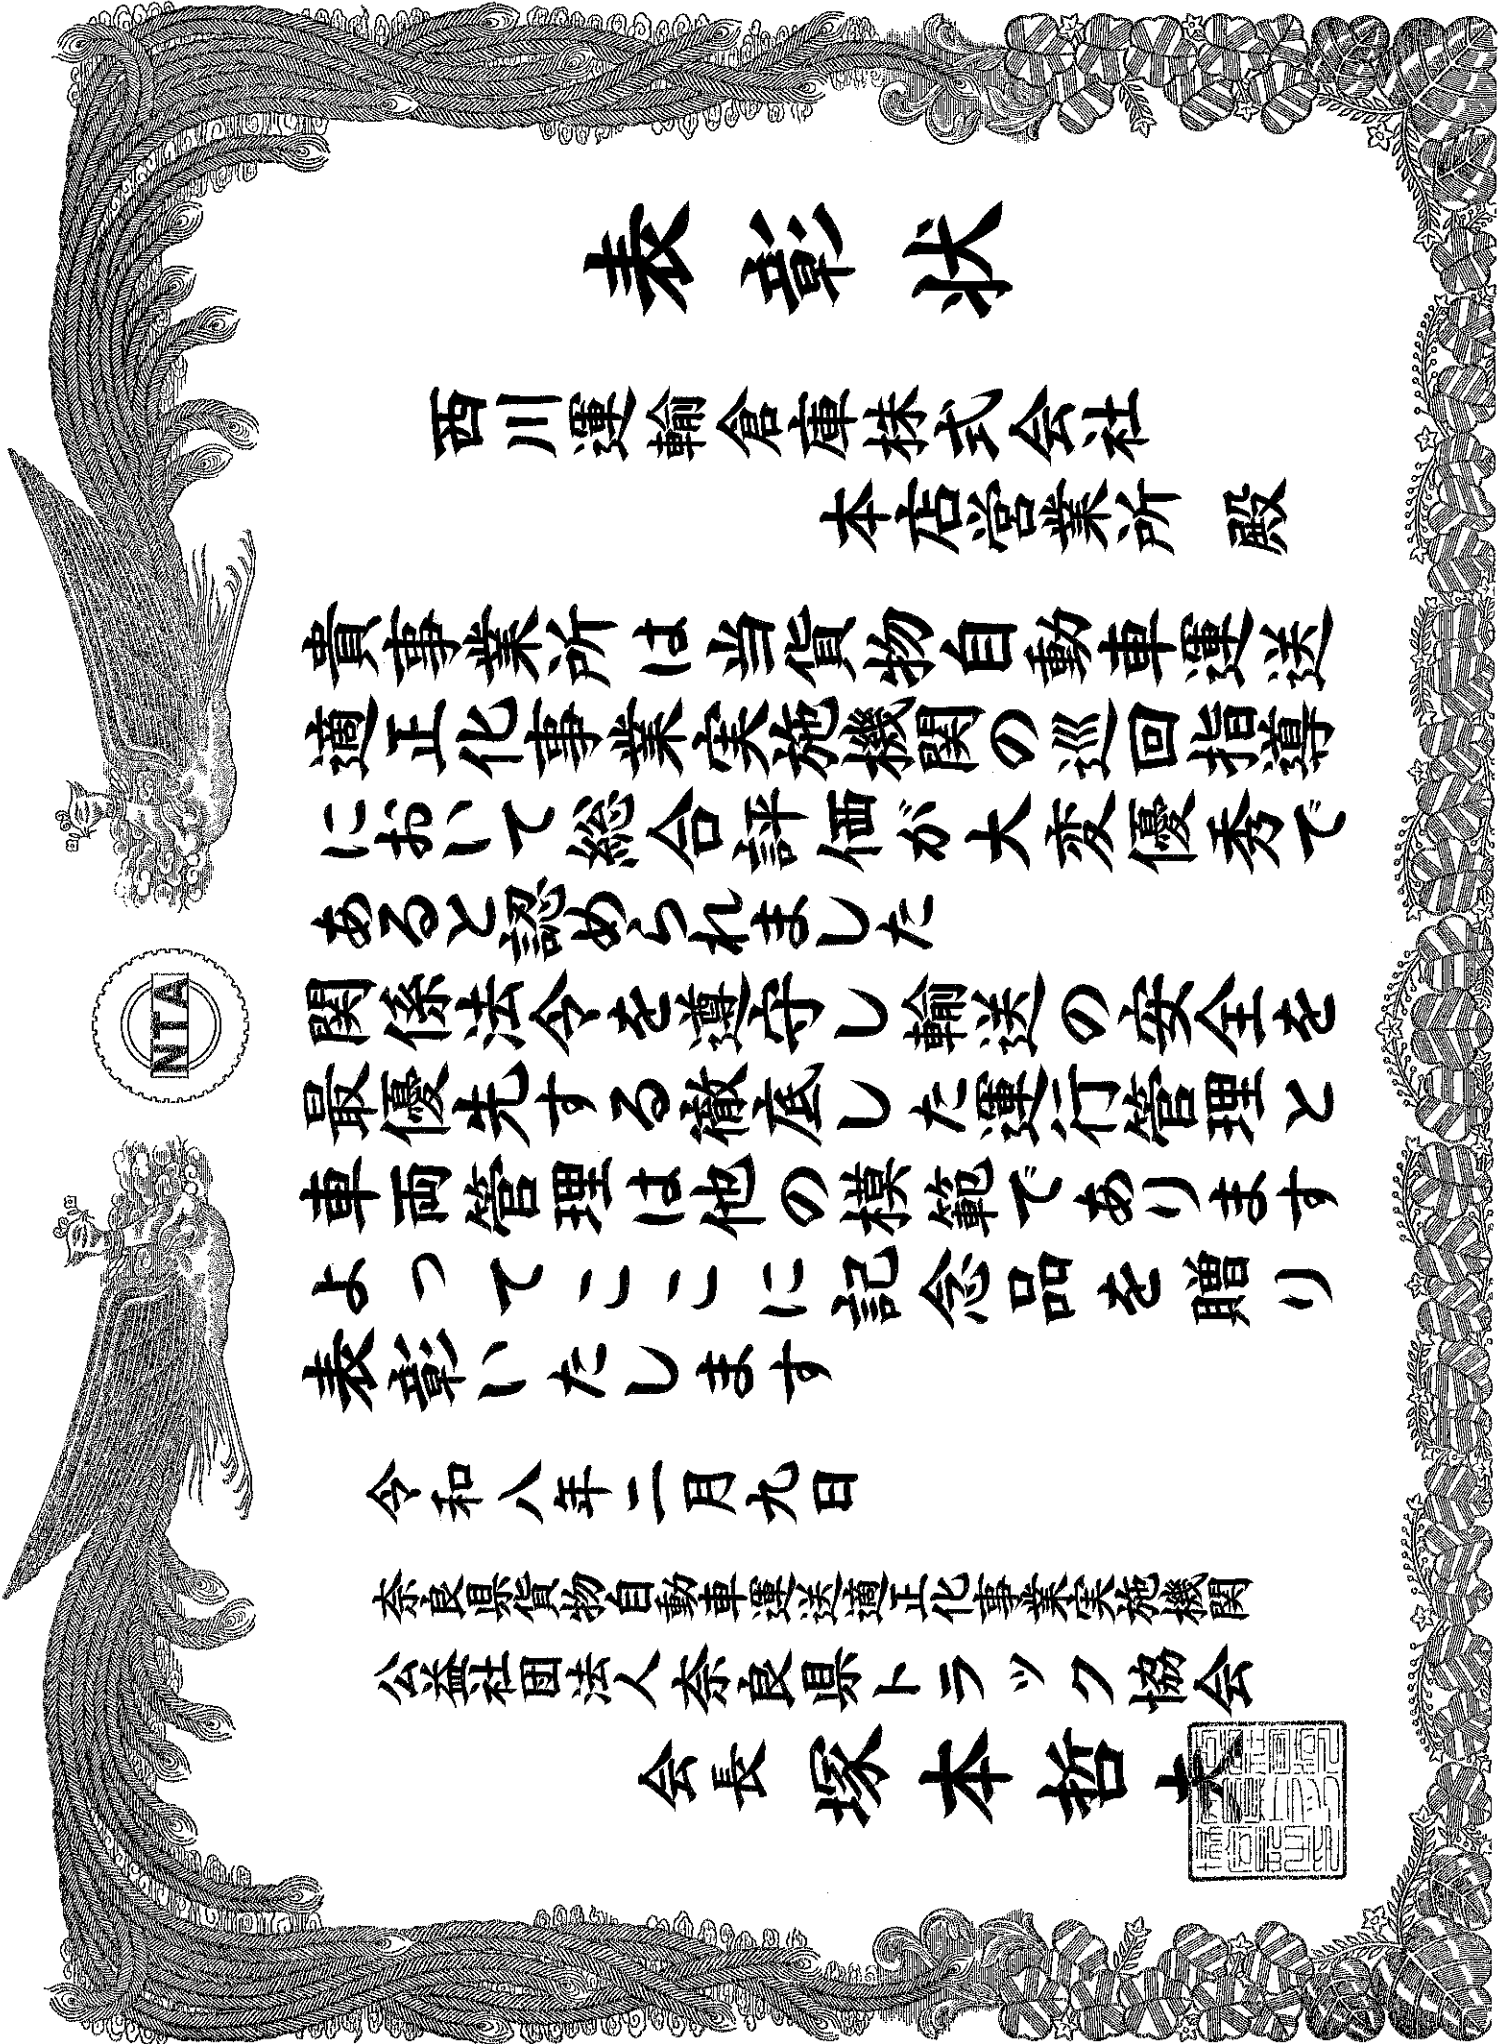 表彰状
西川運輸倉庫株式会社
本店営業所 殿
貴事業所は当貨物自動車運送
適正化事業実施機関の巡回指導
において総合評価が大変優秀で
あると認められました
関係法令を遵守し輸送の安全を
最優先する徹底した運行管理と
車両管理は他の模範であります
よってここに記念品を贈り
表彰いたします
令和八年二月九日
奈良県貨物自動車運送適正化事業実施機関
公益社団法人奈良県トラック協会
会長 塚本哲夫
NTA